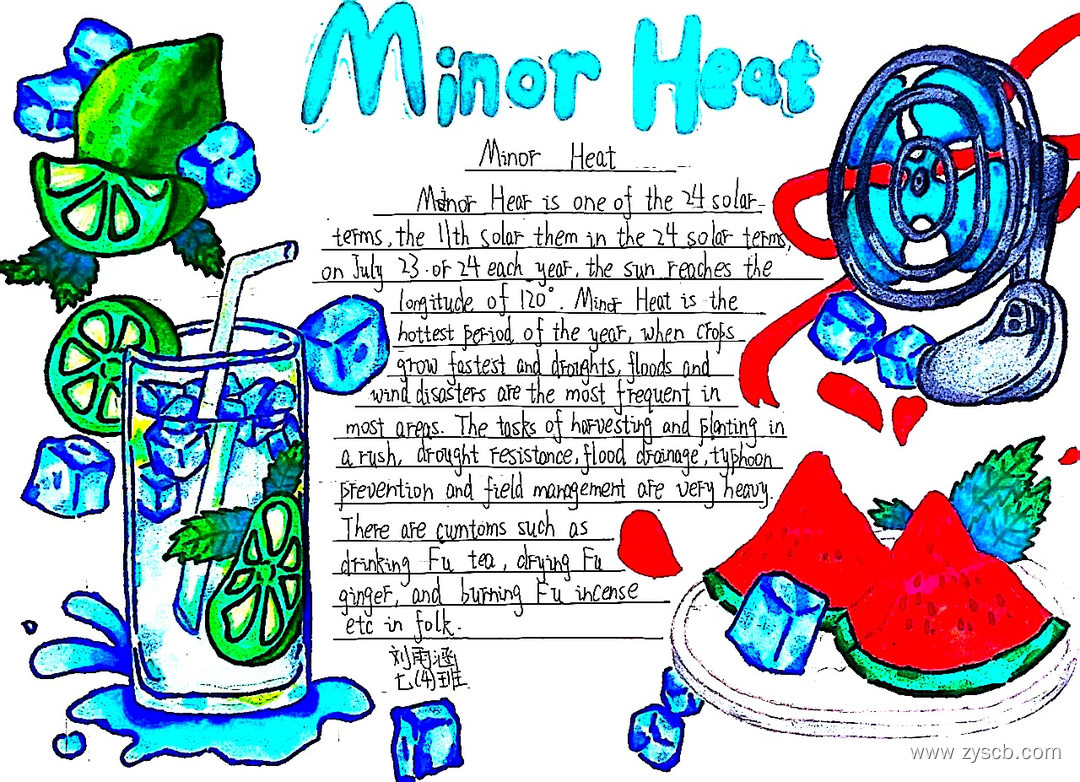 Minor Heat
Minor Heat
Minor Hear is one of the 24 solar
terms, the 11th solar them in the 24 solar terms,
on July 23 or 24 each year, the sun reaches the
longitude of 120°. Minor Heat is the
hottest period of the year, when crops
grow fastest and droughts, floods and
wind disasters are the most frequent in
most areas. The tasks of harvesting and planting in
a rush, drought resistance, flood drainage, typhoon
prevention and field management are very heavy.
There are cumtoms such as
drinking Fu tea, drying Fu
ginger, and burning Fu incense
etc in folk.
刘雨涵
七(4)班
www.zyscb.com